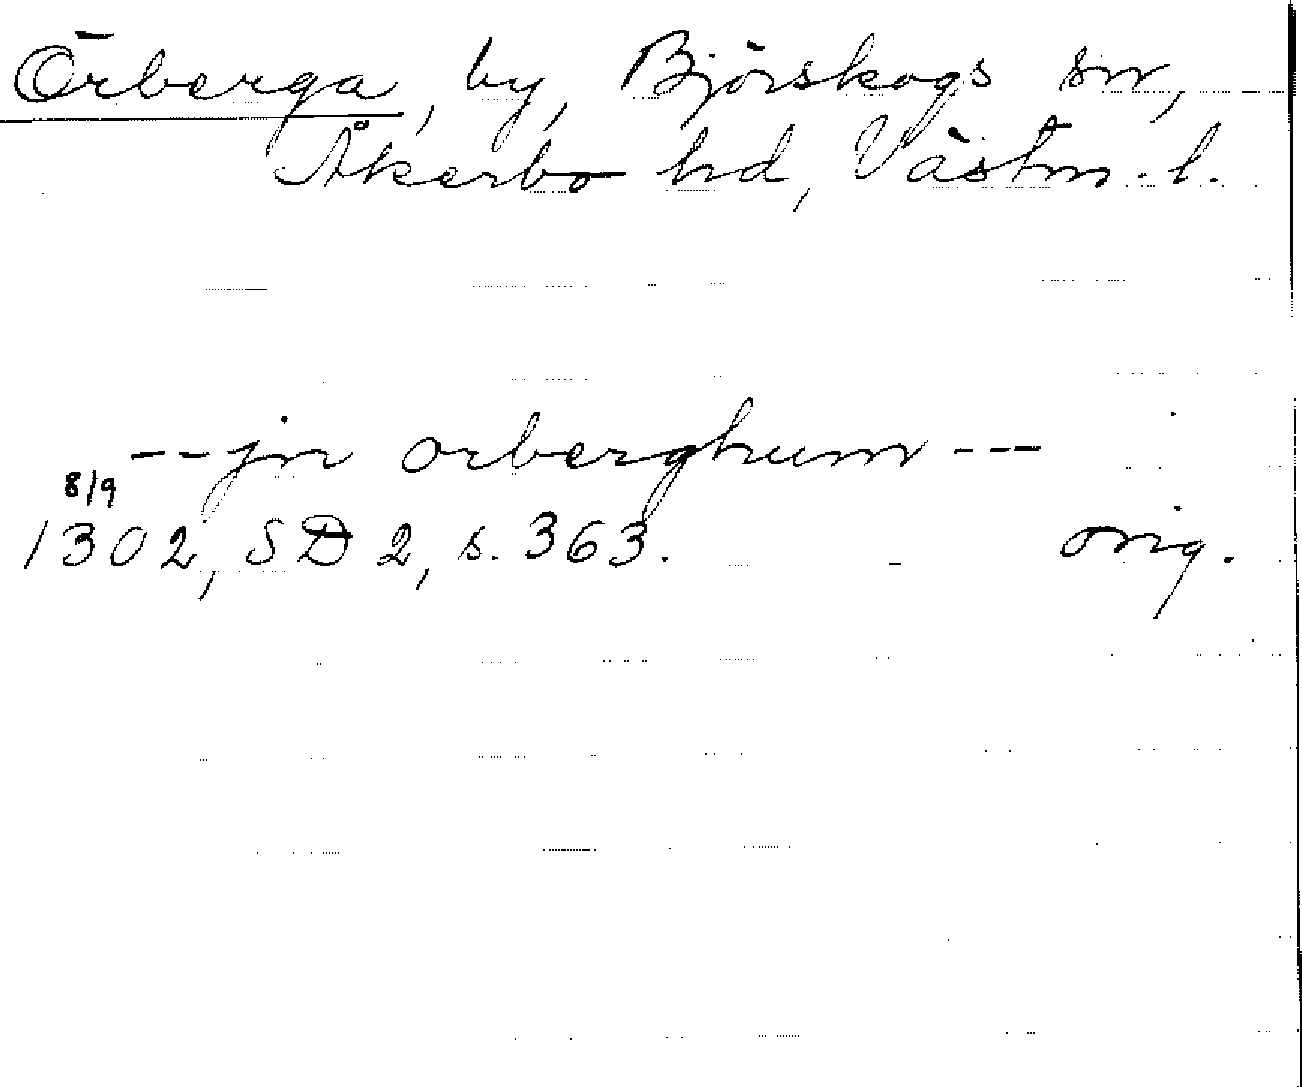 Örberga, by, Björskogs sn,
Åkerbo hd, Västm. l.
--- jn orberghum ---
8/9
1302, SD 2, s. 363. orig.